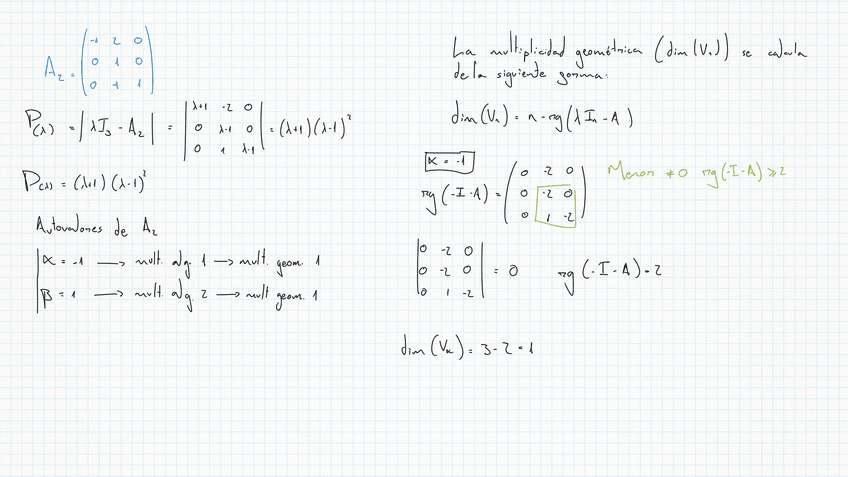 A₂ = ( -1 2 0
0 1 0
0 1 1 )
P(λ) = |λI₃ - A₂| = | λ+1 -2 0
0 λ-1 0
0 1 λ-1 | = (λ+1)(λ-1)²
P(λ) = (λ+1)(λ-1)²
Autovalores de A₂
α = -1 → mult. alg. 1 → mult. geom. 1
β = 1 → mult. alg. 2 → mult geom. 1
La multiplicidad geométrica (dim(Vₐ)) se calcula
de la siguiente forma:
dim(Vₐ) = n - rg(λIₙ - A)
α = -1
rg(-I-A) = ( 0 -2 0
0 -2 0
0 1 -2 )
Menor ≠ 0 rg(-I-A) ≥ 2
| 0 -2 0
0 -2 0
0 1 -2 | = 0 rg(-I-A) = 2
dim(Vα) = 3 - 2 = 1